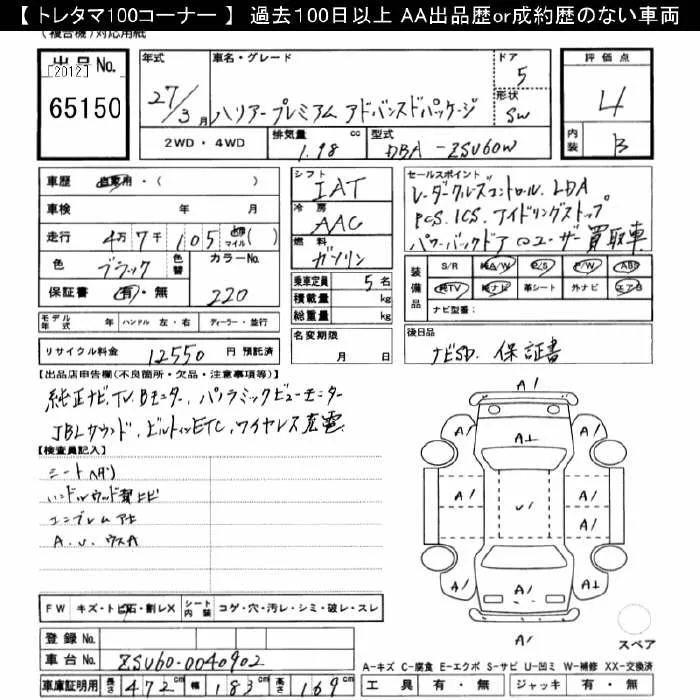 【 トレタマ100コーナー 】 過去100日以上 AA出品歴or成約歴のない車両
(複合機) 対応用紙
出品No.
[2012]
65150
年式
27/3月
車名・グレード
ハリアープレミアム アドバンスドパッケージ
ドア
5
形状
SW
2WD・4WD
排気量 cc
1.98
型式
DBA-ZSU60W
評価点
4
内装
B
車歴 自家用・( )
車検 年 月
走行 4万7千105 マイル( )
色 ブラック 色替 カラーNo.
220
保証書 有・無
シフト
IAT
冷房
AAC
燃料
ガソリン
乗車定員 5名
積載量 kg
総重量 kg
名変期限
月 日
セールスポイント
レーダークルーズコントロール、LDA
PCS、ICS、アイドリングストップ
パワーバックドア ワンユーザー買取車
装備品
S/R 純A/W P/S P/W ABS
純TV 純ナビ 革シート 外ナビ エアB
ナビ型番:
モデル年式 年 ハンドル 左・右 ディーラー・並行
リサイクル料金 12550 円 預託済
後日品
ナビSD、保証書
【出品店申告欄(不良箇所・欠品・注意事項等)】
純正ナビ、TV、Bモニター、パノラミックビューモニター
JBLサウンド、ビルトインETC、ワイヤレス充電
【検査員記入】
シートヘタリ
エンブレム
A、U、ウスA
A1
A1 A1 A1
A1 U1 A1
A1 A1
A1 A1
A1
FW キズ・トビ石・割レX シート内装 コゲ・穴・汚レ・シミ・破レ・スレ
スペア
登録 No.
車台 No. ZSU60-0040902
A-キズ C-腐食 E-エクボ S-サビ U-凹ミ W-補修 XX-交換済
車庫証明用 長さ 472cm 幅 183cm 高さ 169cm
工具 有・無 ジャッキ 有・無